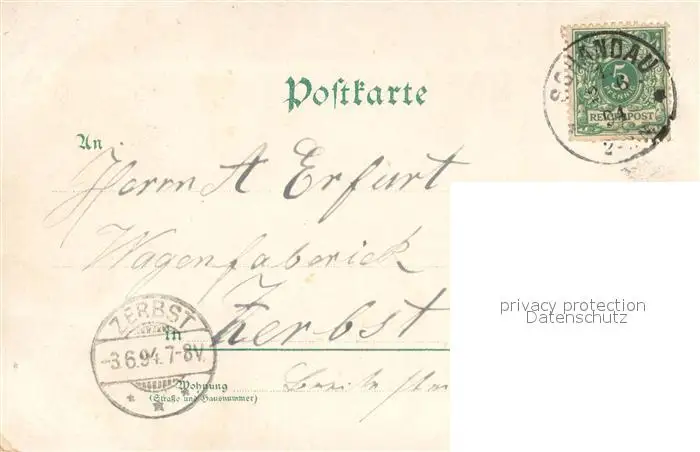 Postkarte
SCHANDAU
5
REICHSPOST
An
Herrn A Erfurt
Wagenfaberick
in Zerbst
ZERBST
-3.6.94.7-8V.
Wohnung
(Straße und Hausnummer)
privacy protection
Datenschutz